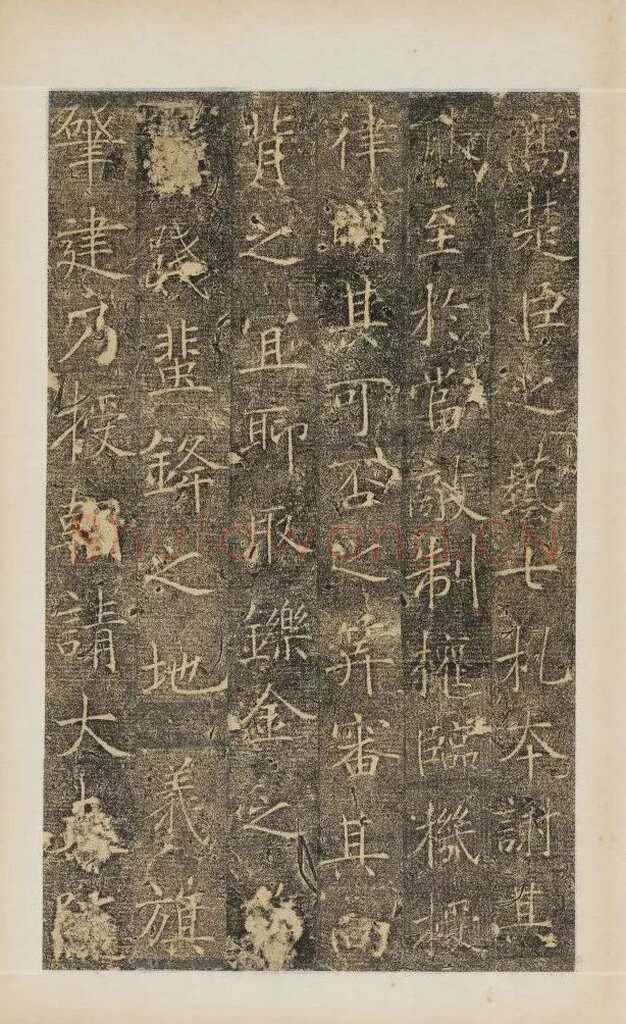 高楚臣之藝七札本謝其
能至於當敵制權臨機授
律明其可否之筭審其向
背之宜聊取鑠金之
殘蜚鋒之地義旗
肇建乃授朝請大夫
shufawang.CN